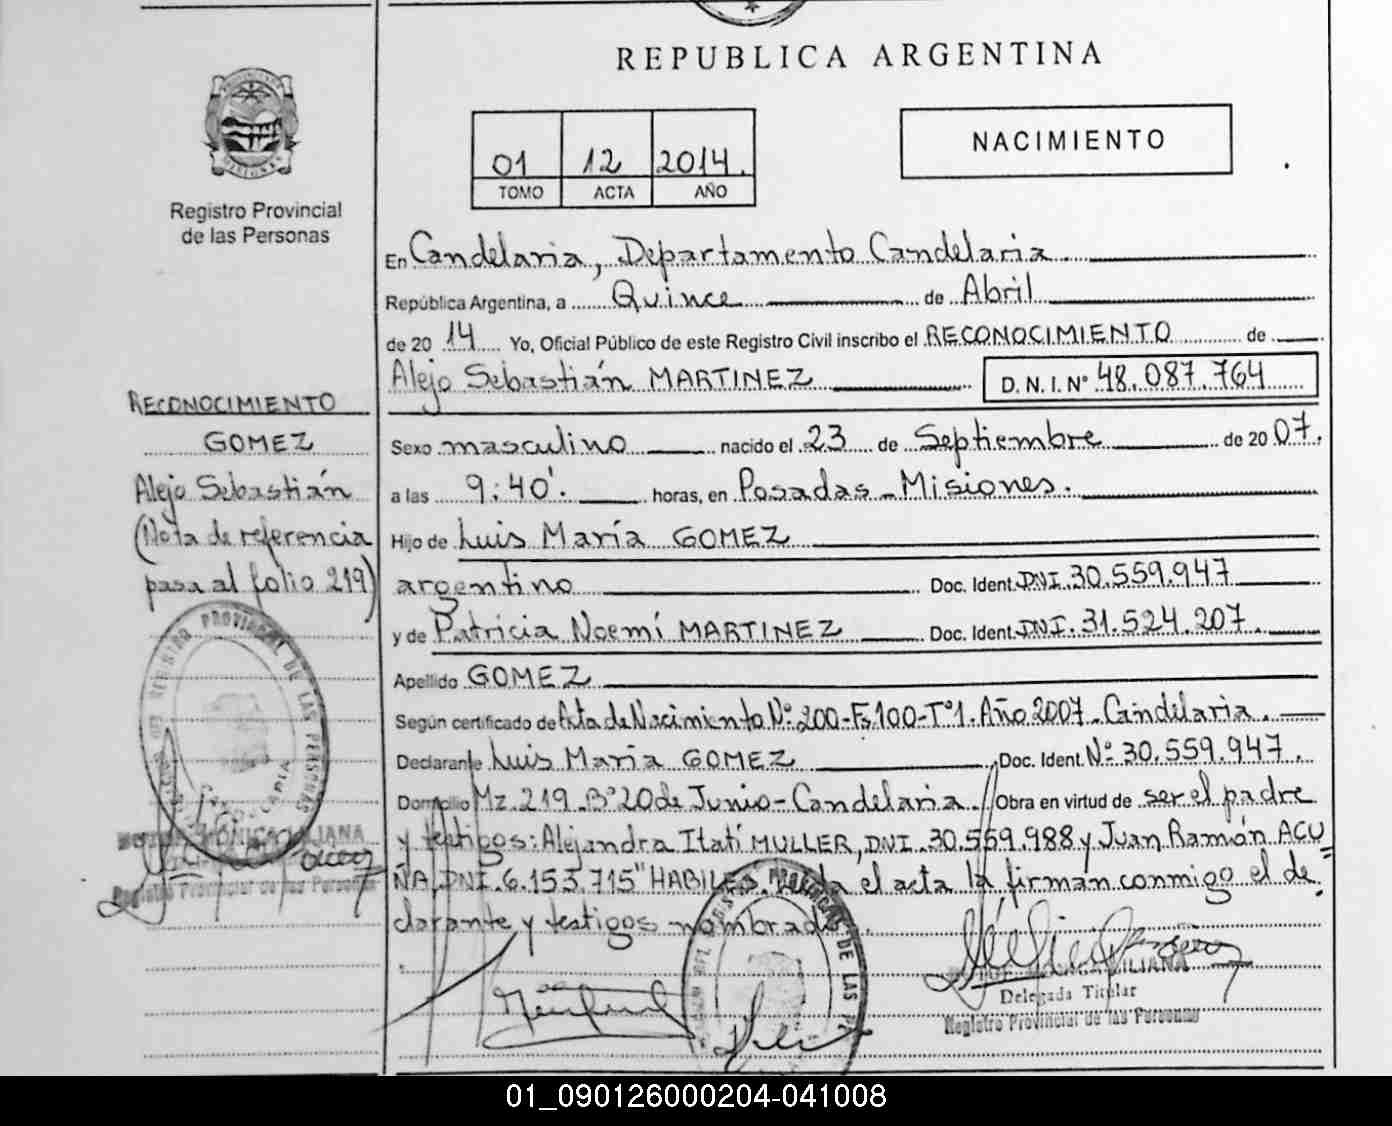 REPUBLICA ARGENTINA
01 12 2014.
TOMO ACTA AÑO
NACIMIENTO
MISIONES
Registro Provincial
de las Personas
En Candelaria, Departamento Candelaria
República Argentina, a Quince de Abril
de 20 14 Yo, Oficial Público de este Registro Civil inscribo el RECONOCIMIENTO de
Alejo Sebastián MARTINEZ D. N. I. Nº 48.087.764
Sexo masculino nacido el 23 de Septiembre de 20 07.
a las 9:40'. horas, en Posadas - Misiones.
Hijo de Luis María GOMEZ
argentino Doc. Ident. DNI. 30.559.947
y de Patricia Noemí MARTINEZ Doc. Ident. DNI. 31.524.207.
Apellido GOMEZ
Según certificado de Acta de Nacimiento Nº 200-Fº 100-Tº 1. Año 2007 - Candelaria.
Declarante Luis María GOMEZ Doc. Ident. Nº 30.559.947.
Domicilio Mz. 219 Bº 20 de Junio - Candelaria. Obra en virtud de ser el padre
y testigos: Alejandra Itatí MULLER, DNI. 30.559.988 y Juan Ramón ACU
ÑA, DNI. 6.153.715 "HABILES. Leída el acta la firman conmigo el de
clarante y testigos nombrados.
RECONOCIMIENTO
GOMEZ
Alejo Sebastián
(Nota de referencia
pasa al folio 219)
REGISTRO PROVINCIAL DE LAS PERSONAS
MONICA LILIANA
Registro Provincial de las Personas
PROVINCIAL DE LAS
MONICA LILIANA
Delegada Titular
Registro Provincial de las Personas
01_090126000204-041008